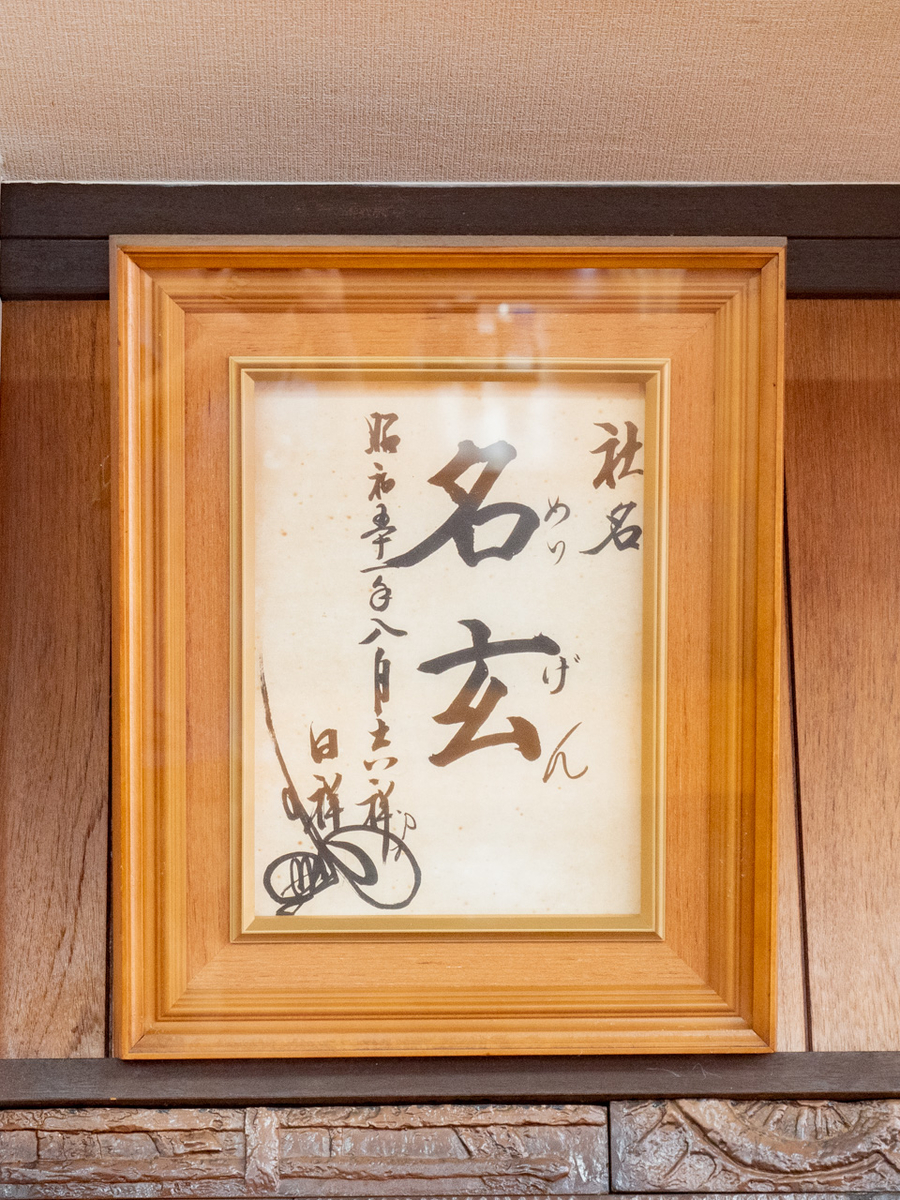 社名
めりげん
名玄
昭和五十一年八月吉祥日
日祥